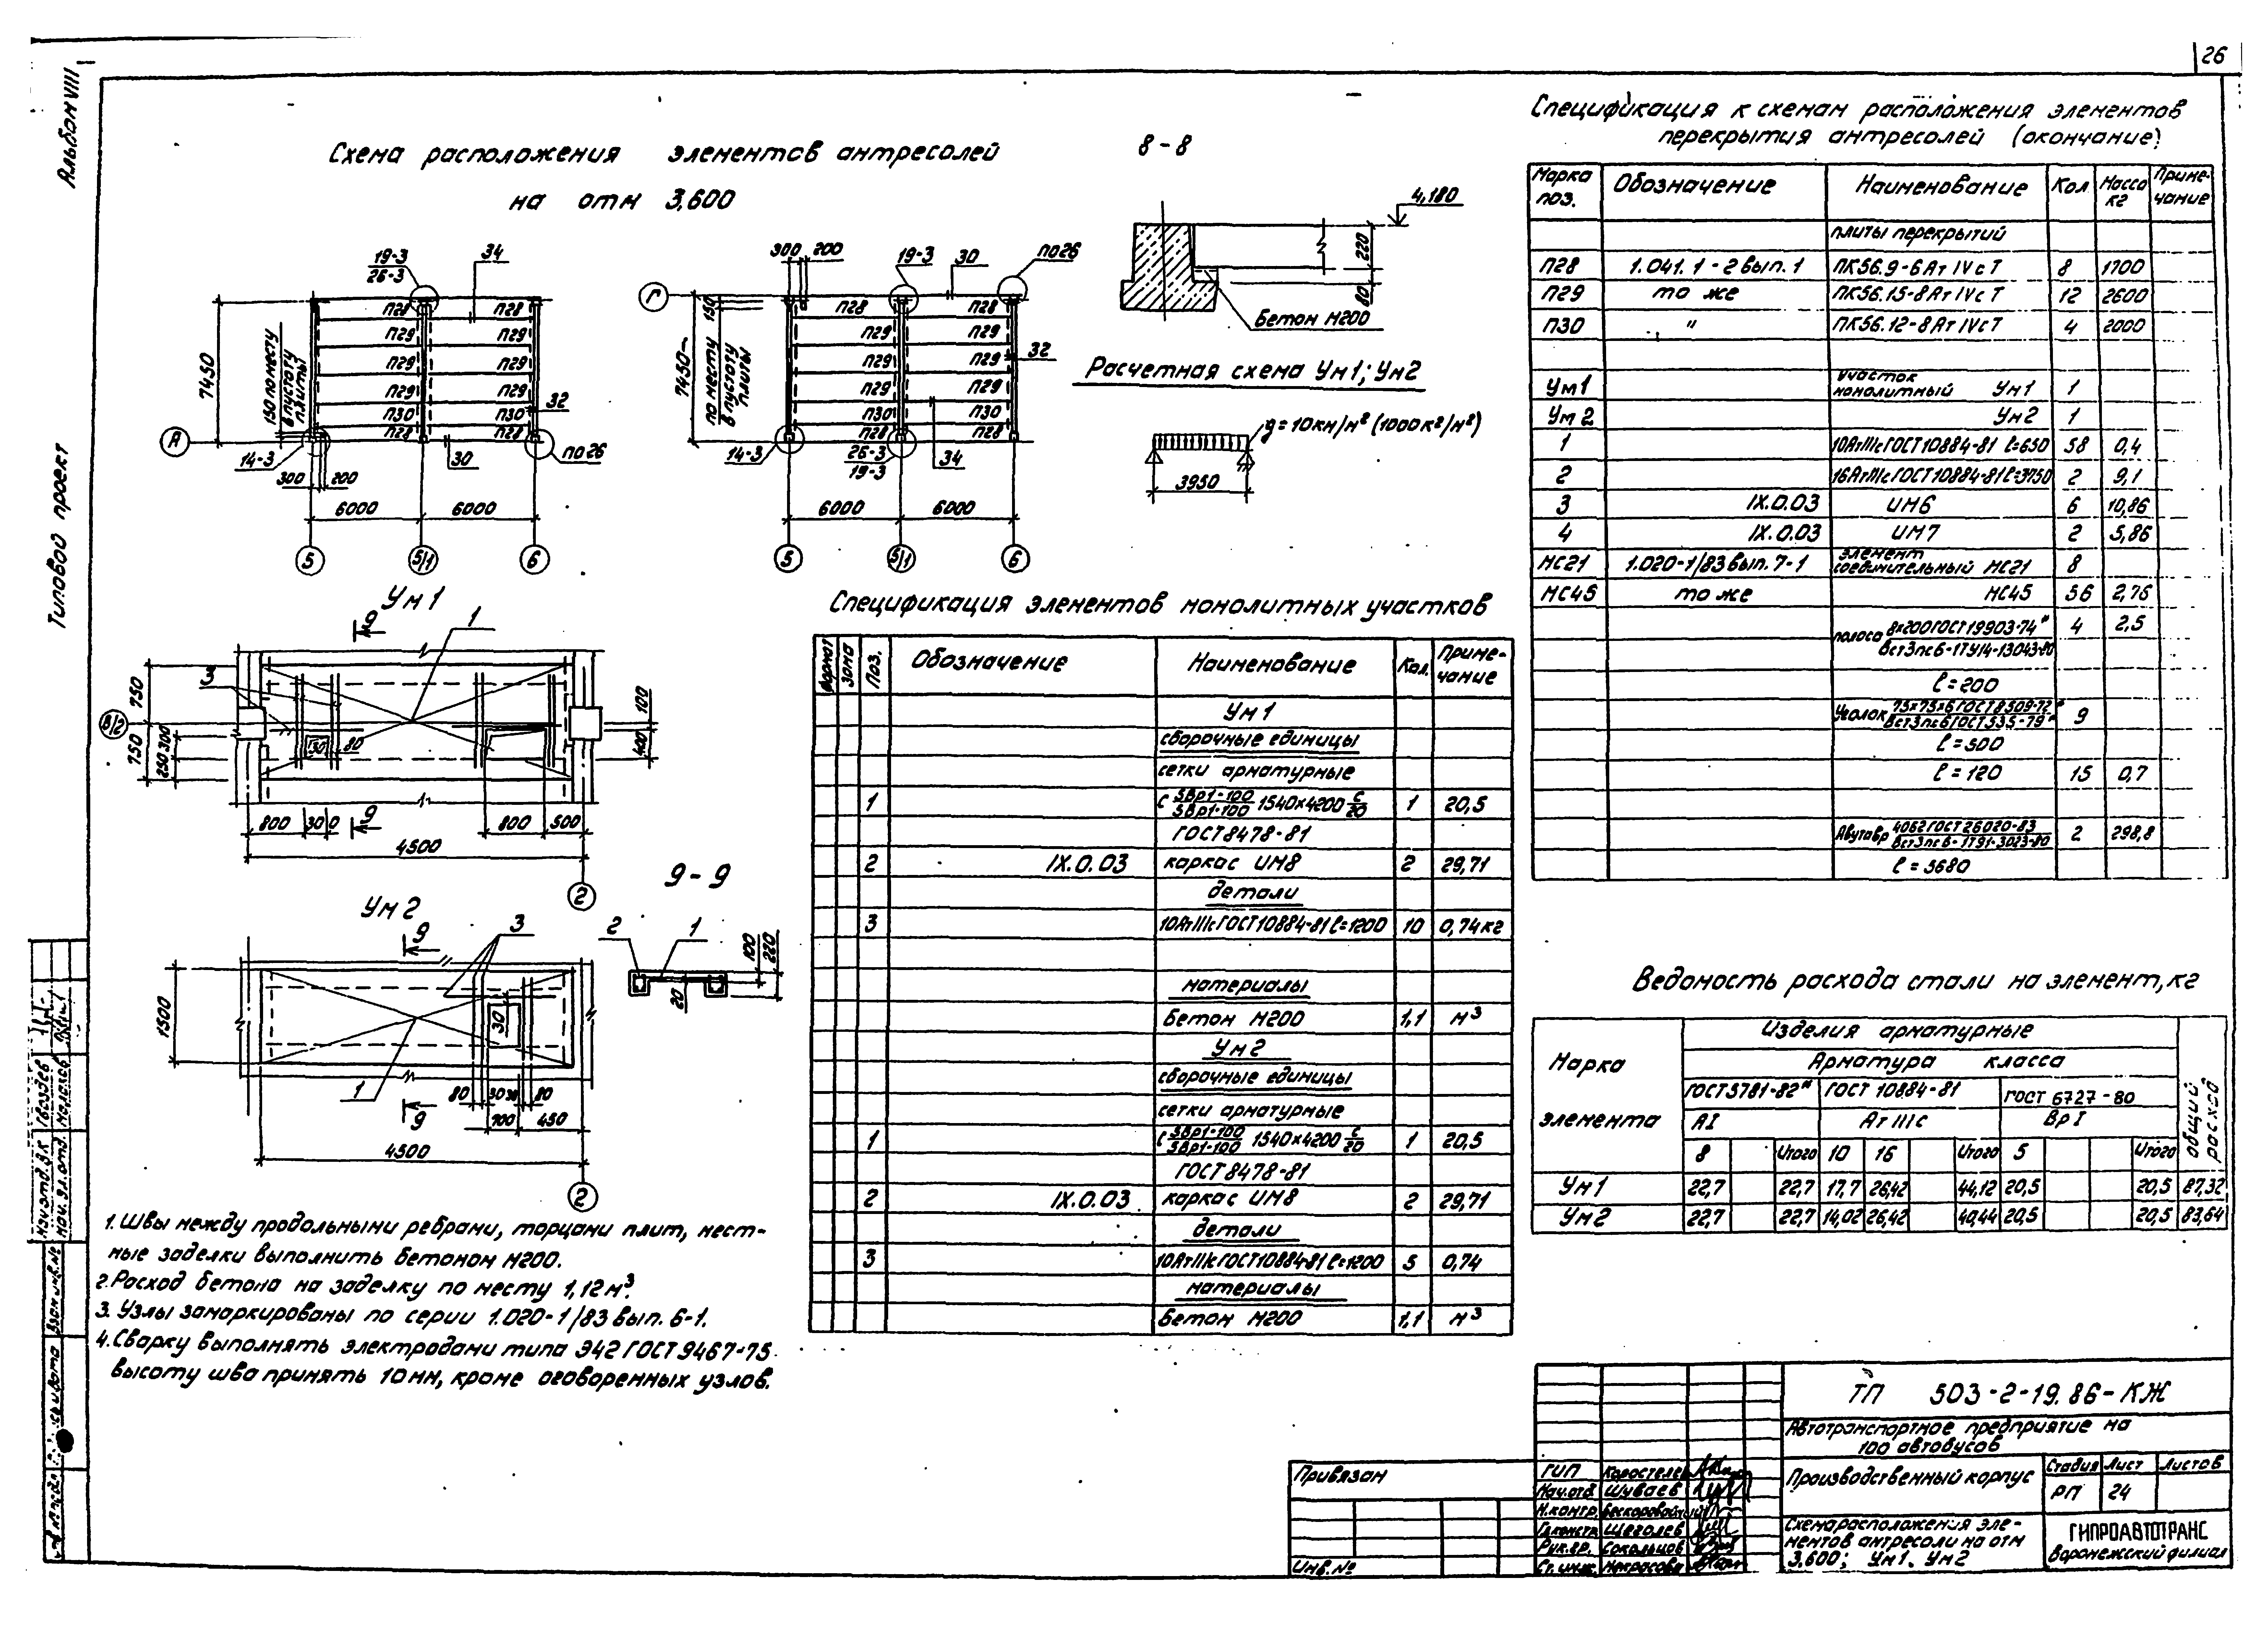 26
Альбом VIII
Типовой проект
Схема расположения элементов антресолей
на отм 3,600
8-8
19-3
26-3
34
П28 П28
П29 П29
П29 П29
П29 П29
П30 П30
П28 П28
7450
150 по месту
в пустоту
плиты
32
А
14-3
30
по 26
300 200
6000 6000
5 5/1 6
300 200
19-3
30
по 26
Г
150
П28 П28
П29 П29
П29 П29
П29 П29
П30 П30
П28 П28
7450
по месту
в пустоту
плиты
32
14-3
26-3
19-3
34
6000 6000
5 5/1 6
4,180
220
80
Бетон М200
Расчетная схема Ум1; Ум2
g = 10кн/м² (1000кг/м²)
3950
Ум 1
9
1
3
750
750
В/2
250 300
30
80
100
400
800 300
9
800 500
4500
2
9-9
2 1
100
220
20
Ум 2
9
3
1500
30
1
80
80
700 450
9
4500
2
1. Швы между продольными ребрами, торцами плит, мест-
ные заделки выполнить бетоном М200.
2. Расход бетона на заделку по месту 1,12м³.
3. Узлы замаркированы по серии 1.020-1/83 вып. 6-1.
4. Сварку выполнять электродами типа Э42 ГОСТ 9467-75
высоту шва принять 10мм, кроме оговоренных узлов.
Спецификация элементов монолитных участков
Формат Зона Поз. Обозначение Наименование Кол. Приме-
чание
Ум 1
сборочные единицы
сетки арматурные
1 С 5Вр1-100/5Вр1-100 1540×4200 С/20 1 20,5
ГОСТ 8478-81
2 IX.0.03 каркас ИМ8 2 29,71
детали
3 10АтIIIс ГОСТ 10884-81 ℓ=1200 10 0,74кг
материалы
Бетон М200 1,1 м³
Ум 2
сборочные единицы
сетки арматурные
1 С 5Вр1-100/5Вр1-100 1540×4200 С/20 1 20,5
ГОСТ 8478-81
2 IX.0.03 каркас ИМ8 2 29,71
детали
3 10АтIIIс ГОСТ 10884-81 ℓ=1200 5 0,74
материалы
Бетон М200 1,1 м³
Спецификация к схемам расположения элементов
перекрытия антресолей (окончание)
Марка
поз. Обозначение Наименование Кол Масса
кг Приме-
чание
плиты перекрытий
П28 1.041.1-2 вып. 1 ПК56.9-6АтIVсТ 8 1700
П29 то же ПК56.15-8АтIVсТ 12 2600
П30 " ПК56.12-8АтIVсТ 4 2000
Ум1 участок
монолитный Ум1 1
Ум2 Ум2 1
1 10АтIIIс ГОСТ 10884-81 ℓ=650 58 0,4
2 16АтIIIс ГОСТ 10884-81 ℓ=5750 2 9,1
3 IX.0.03 ИМ6 6 10,86
4 IX.0.03 ИМ7 2 5,86
МС21 1.020-1/83 вып. 7-1 элемент
соединительный МС21 8
МС45 то же МС45 56 2,76
полоса 8×200 ГОСТ 19903-74* 4 2,5
Вст3пс6-1ТУ14-13043-80
ℓ=200
Уголок 75×75×6 ГОСТ 8509-72* 9
Вст3пс6 ГОСТ 535-79*
ℓ=500
ℓ=120 15 0,7
Двутавр 40Б2 ГОСТ 26020-83 2 298,8
ℓ=5680
Ведомость расхода стали на элемент, кг
Марка
элемента
Изделия арматурные
Арматура класса
ГОСТ 5781-82* ГОСТ 10884-81 ГОСТ 6727-80
АI Ат IIIс ВрI
8 Итого 10 16 Итого 5 Итого
общий
расход
Ум1 22,7 22,7 17,7 26,42 44,12 20,5 20,5 87,32
Ум2 22,7 22,7 14,02 26,42 40,44 20,5 20,5 83,64
ТП 503-2-19.86-КЖ
Автотранспортное предприятие на
100 автобусов
Производственный корпус
Стадия Лист Листов
РП 24
Схема расположения эле-
ментов антресоли на отм
3.600; Ум1, Ум2
ГИПРОАВТОТРАНС
Воронежский филиал
Привязан
Инв.№
ГИП Коростелев
Нач.отд Шуваев
Н.контр. Бескоровайный
Гл.констр. Щеголев
Рук.гр. Сокольцов
Ст.инж. Некрасова